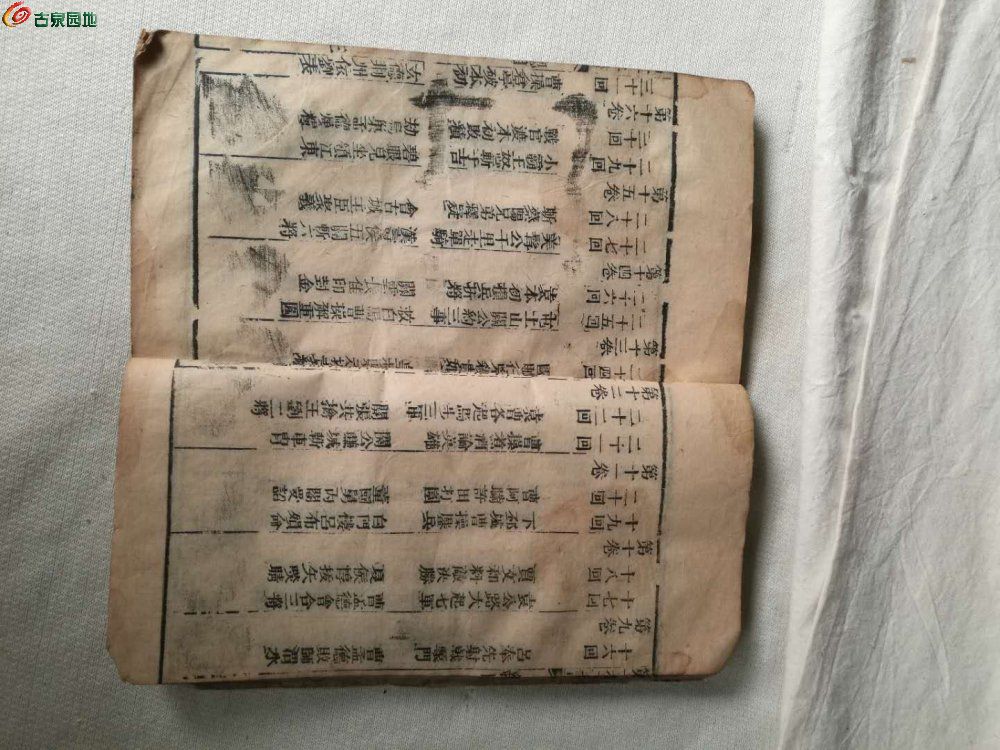 古泉园地
十六回 呂奉先射戟轅門 曹孟德敗師淯水
第九卷
十七回 袁公路大起七軍 曹孟德會合三將
十八回 賈文和料敵決勝 夏侯惇拔矢啖睛
第十卷
十九回 下邳城曹操鏖兵 白門樓呂布殞命
二十回 曹阿瞞許田打圍 董國舅內閣受詔
第十一卷
二十一回 曹操煮酒論英雄 關公賺城斬車冑
二十二回 袁曹各起馬步三軍 關張共擒王劉二將
第十二卷
二十四回
第十三卷
二十五回 屯土山關公約三事 救白馬曹操解重圍
二十六回 袁本初兵折將 關雲長掛印封金
第十四卷
二十七回 美髯公千里走單騎 漢壽侯五關斬六將
二十八回 斬蔡陽兄弟釋疑 會古城主臣聚義
第十五卷
二十九回 小霸王怒斬于吉 碧眼兒坐領江東
三十回 戰官渡本初敗績 劫烏巢孟德燒糧
第十六卷
三十一回 曹操倉亭破本初 玄德荊州依劉表